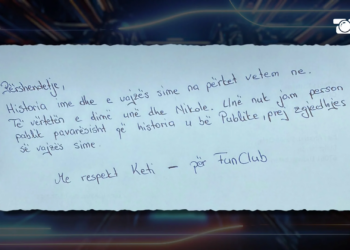 Përshendetje,
Historia ime dhe e vajzës sime na përket vetem ne.
Të vërtetën e dimë unë dhe Nikole. Unë nuk jam person
publik pavarësisht që historia u bë Publike, prej zgjedhjes
së vajzës sime.
Me respekt Keti – për FunClub